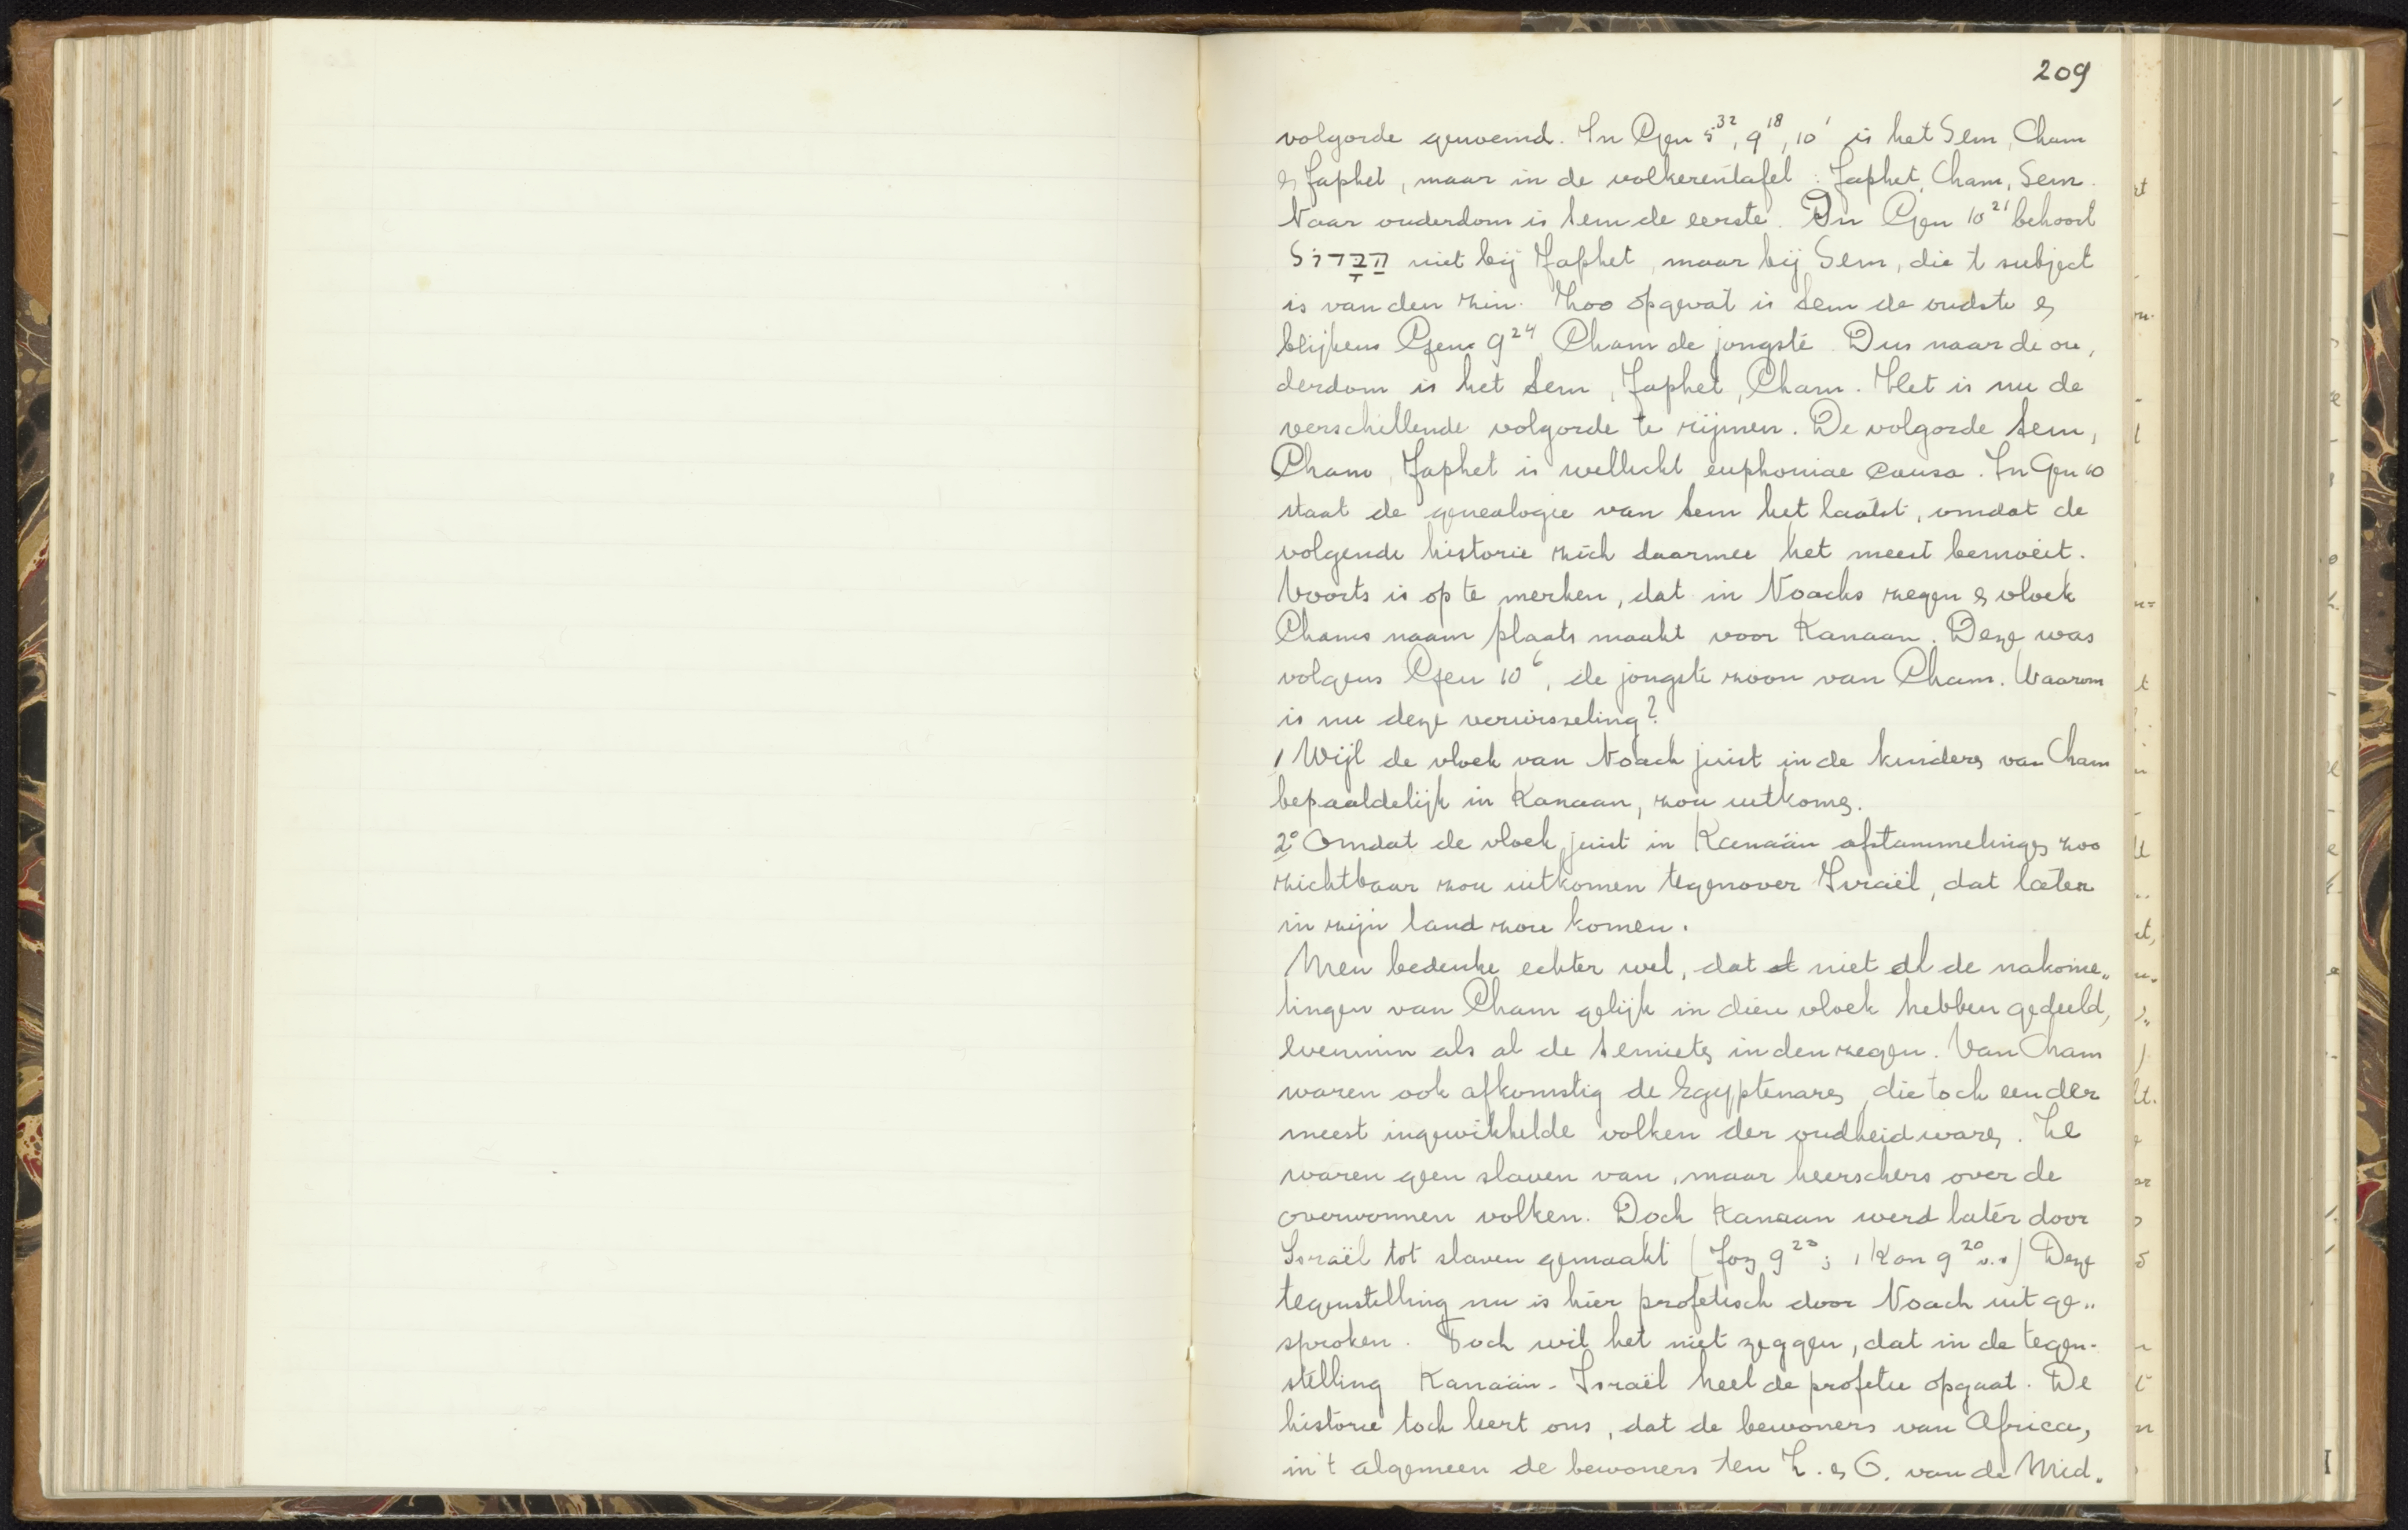 209
volgorde genoemd. In Gen 5³², 9¹⁸, 10¹ is het Sem, Cham
en Japhet, maar in de volkerentafel: Japhet, Cham, Sem.
Naar ouderdom is Sem de eerste. In Gen 10²¹ behoort
הַגָּדוֹל niet bij Japhet, maar bij Sem, die 't subject
is van den zin. Zoo opgevat is Sem de oudste en
blijkens Gen. 9²⁴ Cham de jongste. Dus naar de ou„
derdom is het Sem, Japhet, Cham. Het is nu de
verschillende volgorde te rijmen. De volgorde Sem,
Cham, Japhet is wellicht euphoniae causa. In Gen 10
staat de genealogie van Sem het laatst, omdat de
volgende historie zich daarmee het meest bemoeit.
Voorts is op te merken, dat in Noachs zegen en vloek
Chams naam plaats maakt voor Kanaan. Deze was
volgens Gen 10⁶, de jongste zoon van Cham. Waarom
is nu deze verwisseling?
1 Wijl de vloek van Noach juist in de kinderen van Cham
bepaaldelijk in Kanaan, zou uitkomen.
2° Omdat de vloek juist in Kanaän afstammelingen zoo
zichtbaar zou uitkomen tegenover Israël, dat later
in zijn land zou komen.
Men bedenke echter wel, dat niet al de nakome„
lingen van Cham gelijk in dien vloek hebben gedeeld,
evenmin als al de Semieten in den zegen. Van Cham
waren ook afkomstig de Egyptenaren, die toch een der
meest ingewikkelde volken der oudheid waren. Ze
waren geen slaven van, maar heerschers over de
overwonnen volken. Doch Kanaan werd later door
Israël tot slaven gemaakt (Joz 9²³; 1 Kon 9²⁰ v.v) Deze
tegenstelling nu is hier profetisch door Noach uit ge„
sproken. Toch wil het niet zeggen, dat in de tegen-
stelling Kanaän - Israël heel de profetie opgaat. De
historie toch leert ons, dat de bewoners van Africa,
in 't algemeen de bewoners ten Z. en O. van de Mid„